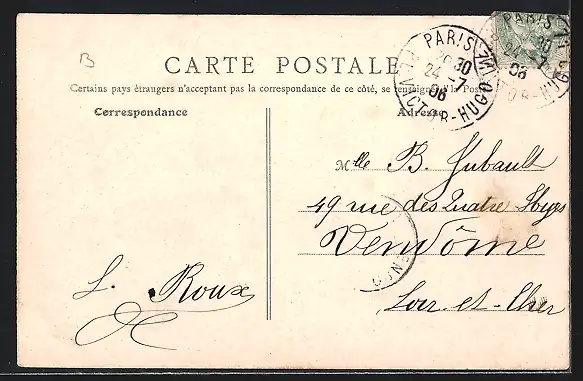 B
CARTE POSTALE
Certains pays étrangers n'acceptant pas la correspondance de ce côté, se renseigner à la Poste
Correspondance
Adresse
PARIS
30
24 -7
06
PL. VICTOR-HUGO
PARIS
30
24 -7
06
OR-HU
Mlle B. Hubault
49 rue des Quatre Huyes
Vendôme
Loir-et-Cher
L. Roux